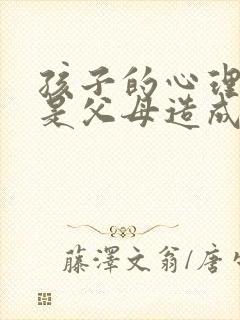 孩子的心理
是父母造成
藤澤文翁/唐